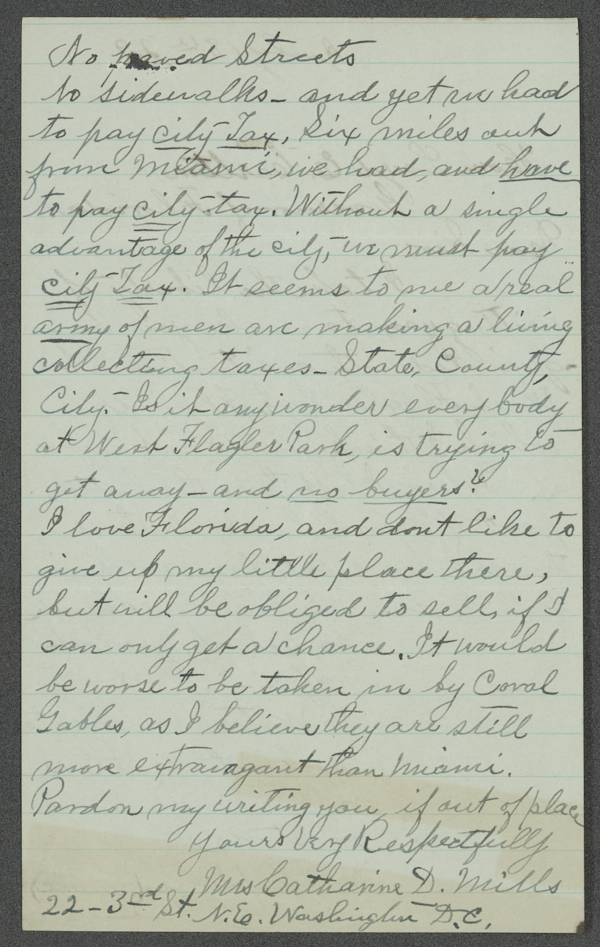 No paved Streets
No sidewalks - and yet we had
to pay city Tax. Six miles out
from Miami, we had, and have
to pay city-tax. Without a single
advantage of the city, we must pay
city Tax. It seems to me a real
army of men are making a living
collecting taxes - State, County,
City. - Is it any wonder every body
at West Flagler Park, is trying to
get away - and no buyers?
I love Florida, and dont like to
give up my little place there,
but will be obliged to sell, if I
can only get a chance. It would
be worse to be taken in by Coral
Gables, as I believe they are still
more extravagant than Miami.
Pardon my writing you, if out of place
Yours Very Respectfully
Mrs Catharine D. Mills
22 - 3rd St. N.E. Washington D.C.